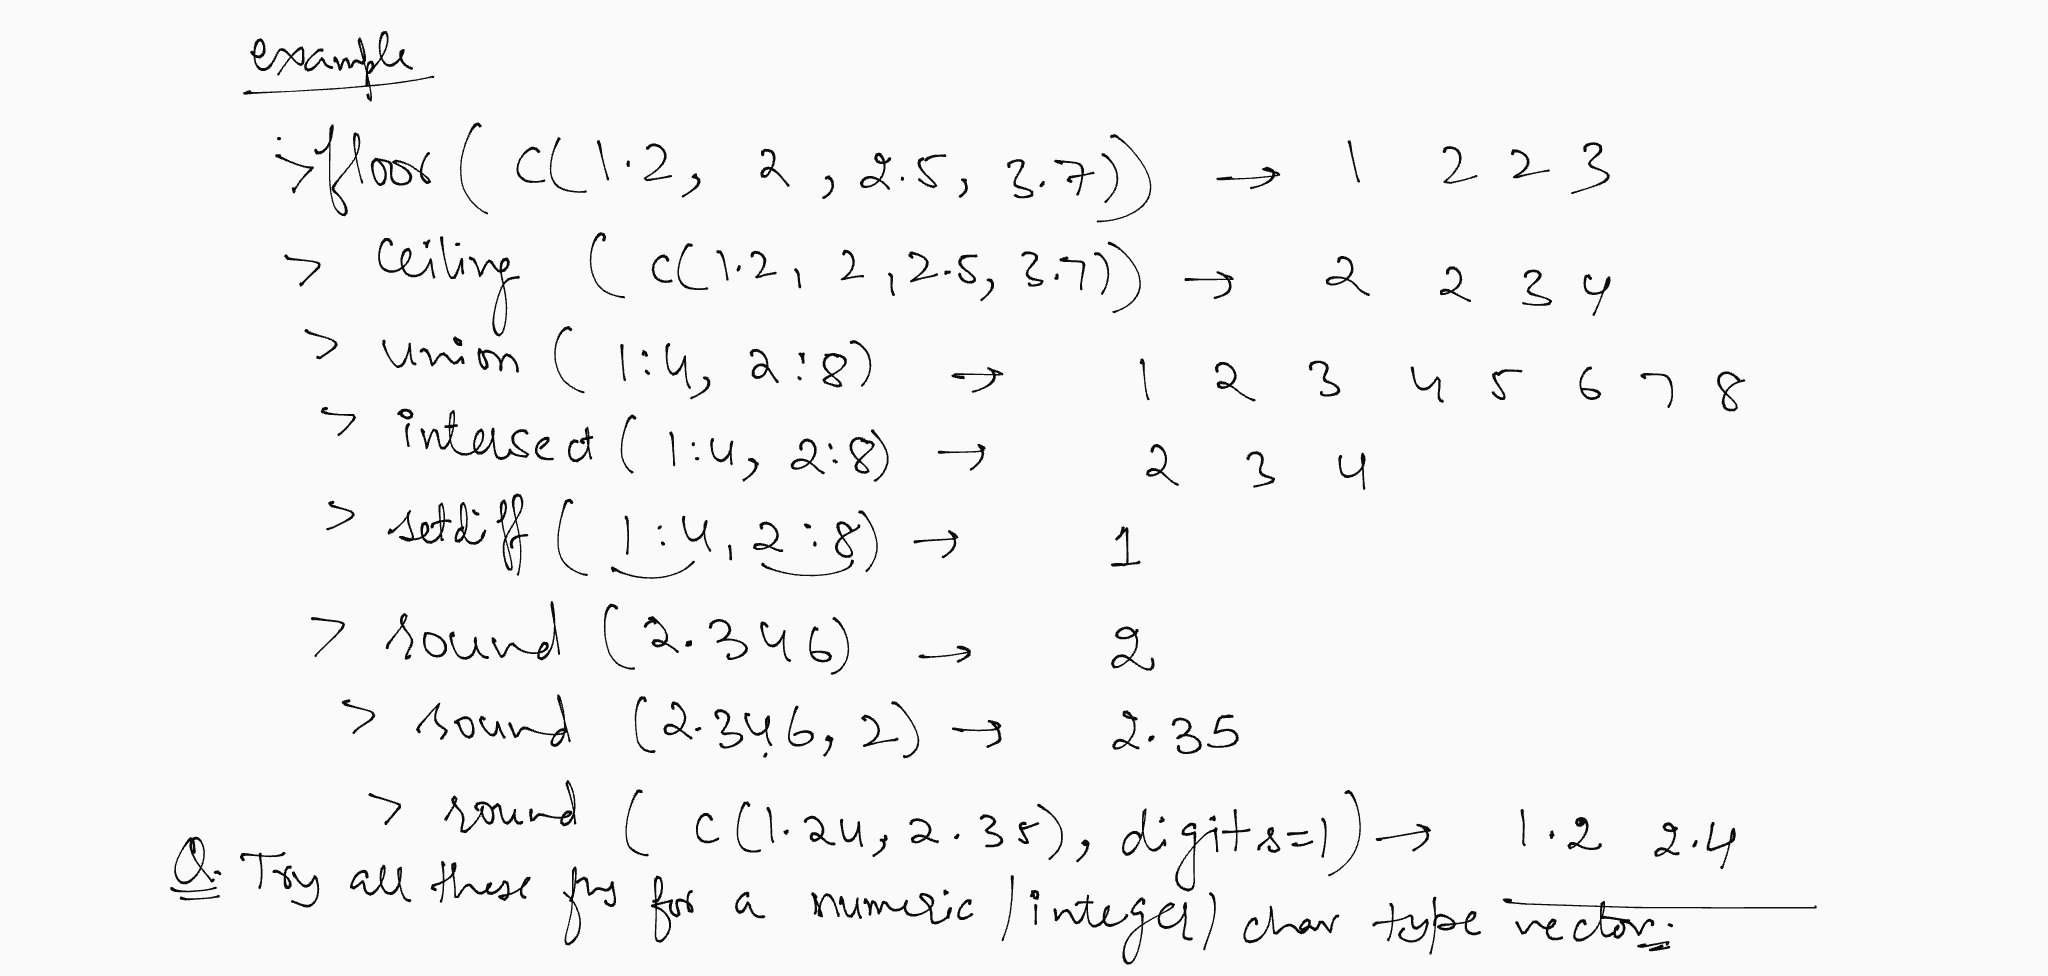 example
:> floor ( c(1.2, 2, 2.5, 3.7)) → 1 2 2 3
> ceiling ( c(1.2, 2, 2.5, 3.7)) → 2 2 3 4
> union ( 1:4, 2:8) → 1 2 3 4 5 6 7 8
> intersect ( 1:4, 2:8) → 2 3 4
> setdiff ( 1:4, 2:8) → 1
> round (2.346) → 2
> round (2.346, 2) → 2.35
> round ( c(1.24, 2.35), digits=1) → 1.2 2.4
Q. Try all these fns for a numeric / integer / char type vector.